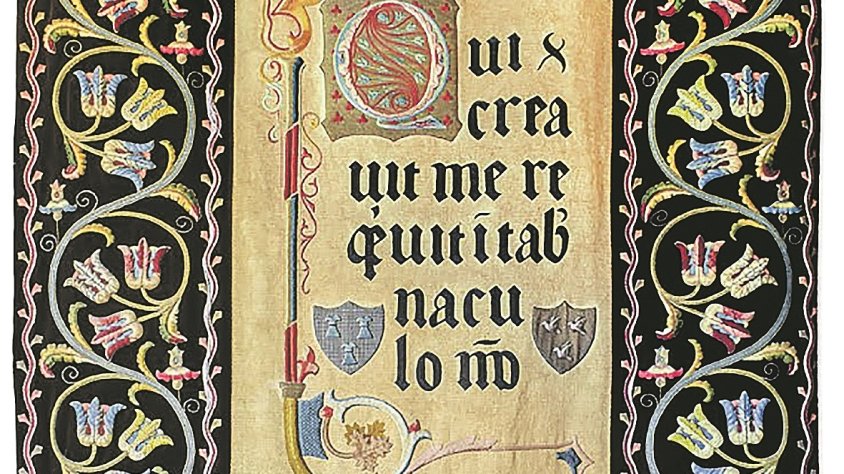 Qui &
crea
uit me re
q̇uit ī tab̄
nacu
lo m̄o